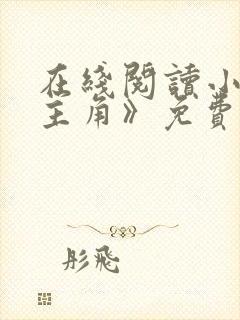 在綫閱讀小
主角》免費
彤飛